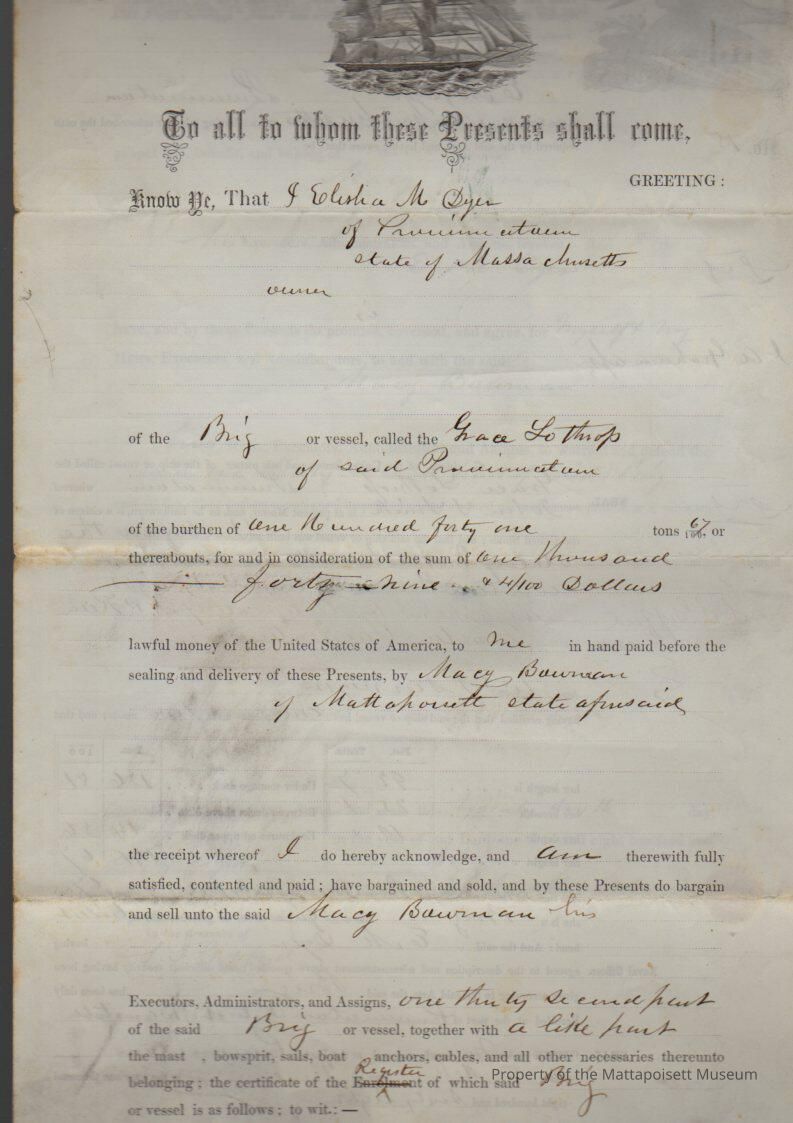 To all to whom these Presents shall come,
GREETING:
Know Ye, That I Elisha M Dyer
of Provincetown
state of Massachusetts
owner
of the Brig or vessel, called the Grace Lothrop
of said Provincetown
of the burthen of one Hundred forty one tons 67/100, or
thereabouts, for and in consideration of the sum of one thousand
forty nine & 4/100 Dollars
lawful money of the United States of America, to me in hand paid before the
sealing and delivery of these Presents, by Macy Bowman
of Mattapoisett state aforesaid
the receipt whereof I do hereby acknowledge, and am therewith fully
satisfied, contented and paid; have bargained and sold, and by these Presents do bargain
and sell unto the said Macy Bowman his
Executors, Administrators, and Assigns, one thirty second part
of the said Brig or vessel, together with a like part
the mast , bowsprit, sails, boat anchors, cables, and all other necessaries thereunto
Register
belonging; the certificate of the Enrolment of which said Brig
or vessel is as follows; to wit.:—
Property of the Mattapoisett Museum